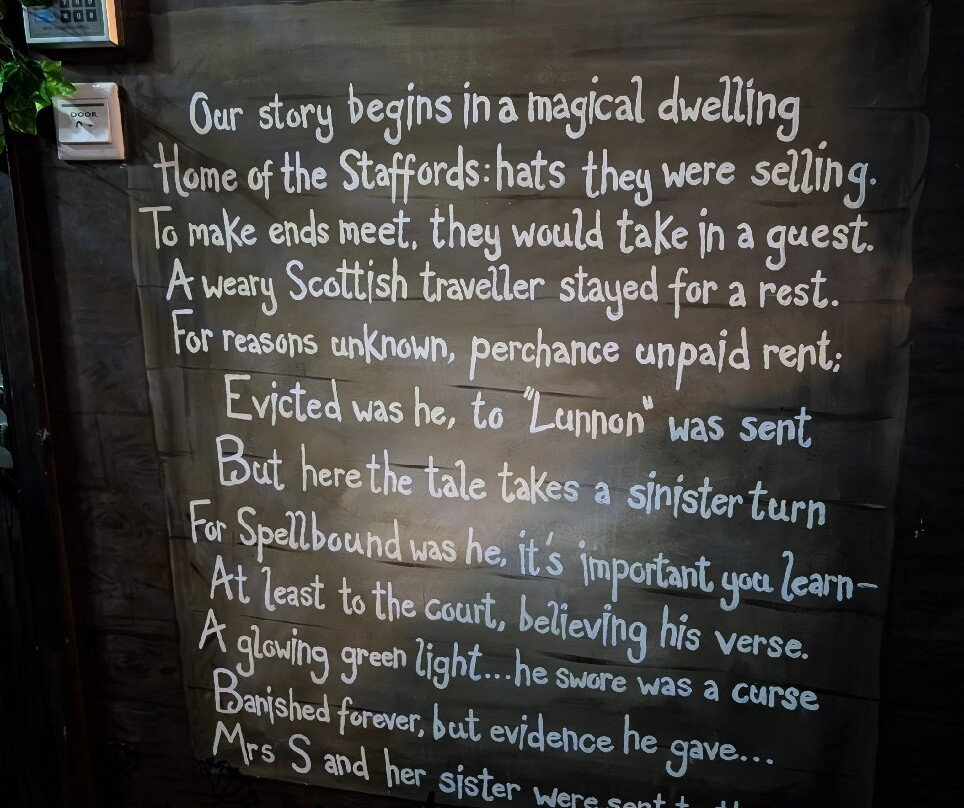 DOOR
Our story begins in a magical dwelling
Home of the Staffords: hats they were selling.
To make ends meet, they would take in a guest.
A weary Scottish traveller stayed for a rest.
For reasons unknown, perchance unpaid rent;
Evicted was he, to "Lunnon" was sent
But here the tale takes a sinister turn
For Spellbound was he, it's important you learn-
At least to the court, believing his verse.
A glowing green light...he swore was a curse
Banished forever, but evidence he gave...
Mrs S and her sister were sent